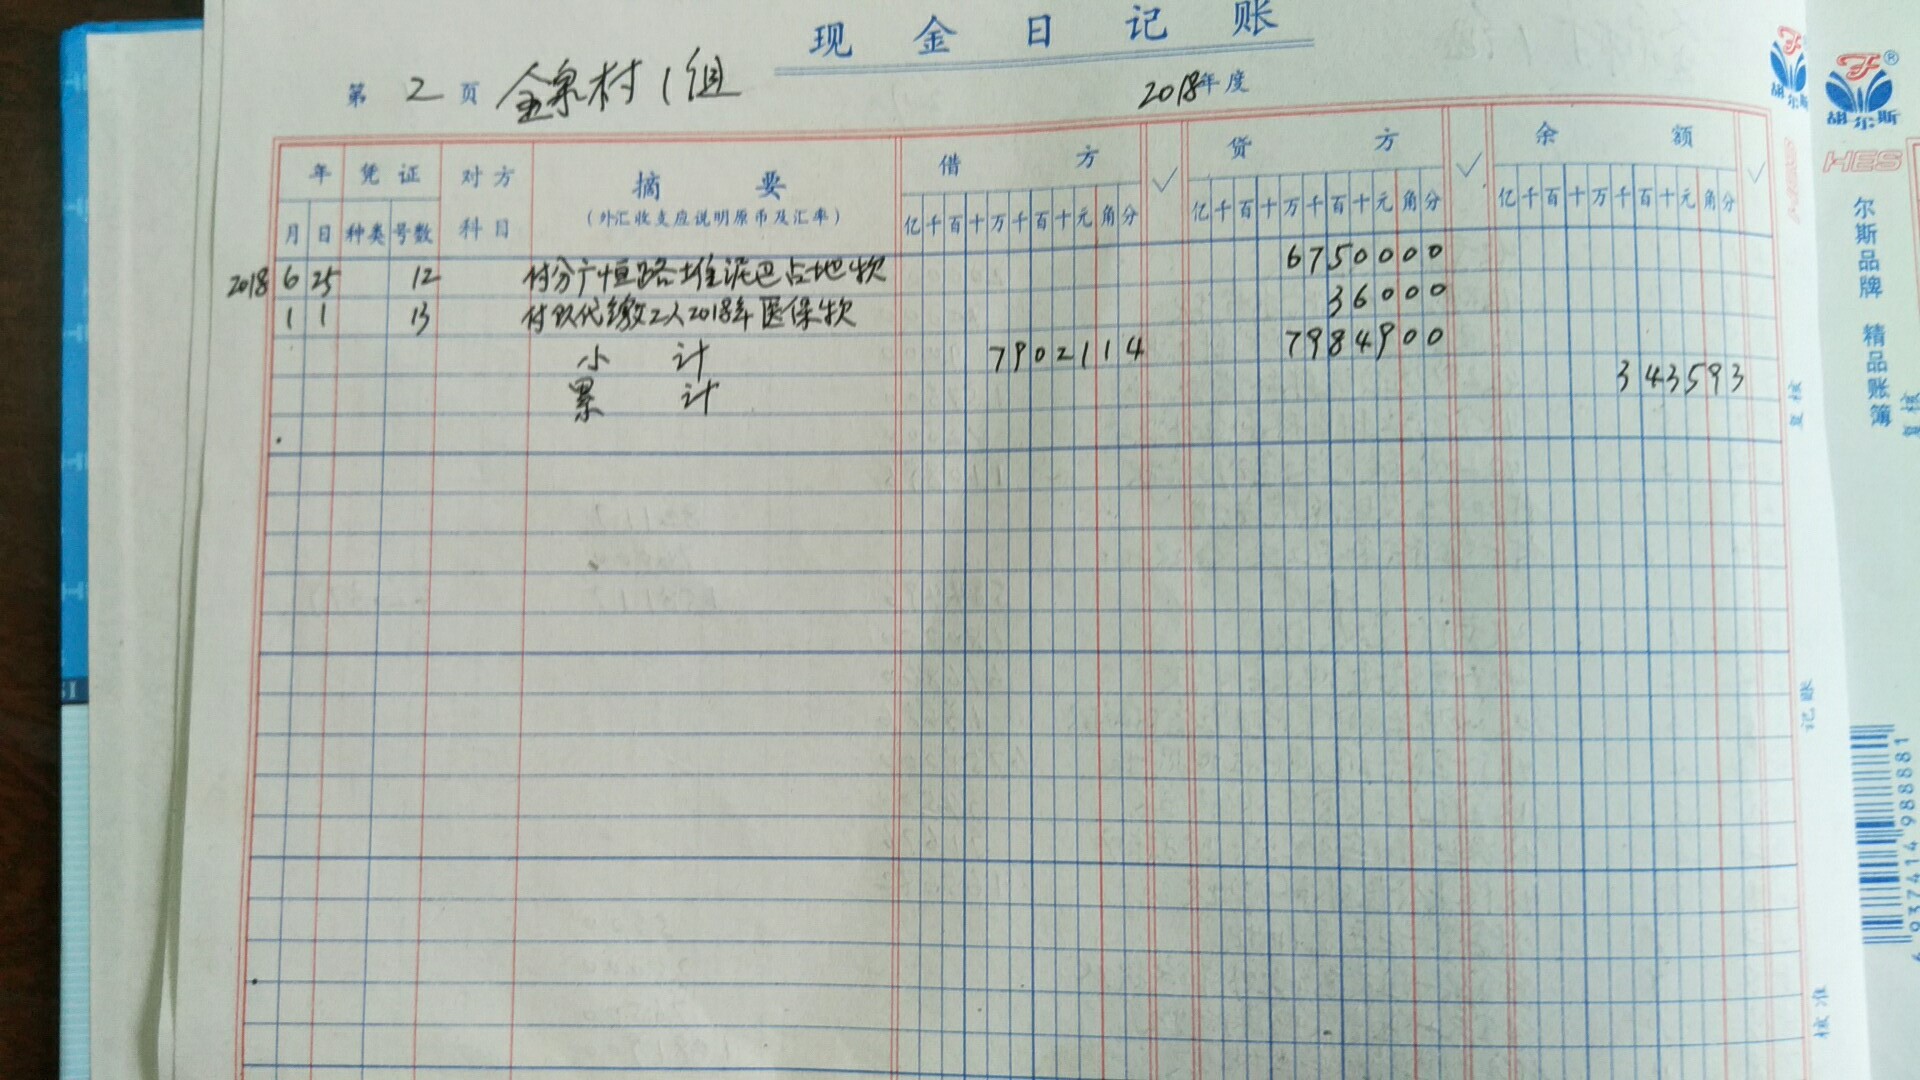 现金日记账
第 2 页 金泉村1组 2018年度
年 凭证 对方 摘要 借方 ✓ 贷方 ✓ 余额 ✓
月 日 种类 号数 科目 (外汇收支应说明原币及汇率) 亿千百十万千百十元角分 亿千百十万千百十元角分 亿千百十万千百十元角分
2018 6 25 12 付分广恒路堆泥巴占地款 6750000
1 1 13 付 代缴2人2018年医保款 36000
小计 7902114 7984900
累计 343593
复核
记账
核准
胡尔斯
胡尔斯
HES
尔斯品牌 精品账簿
复核
6 937414 988881